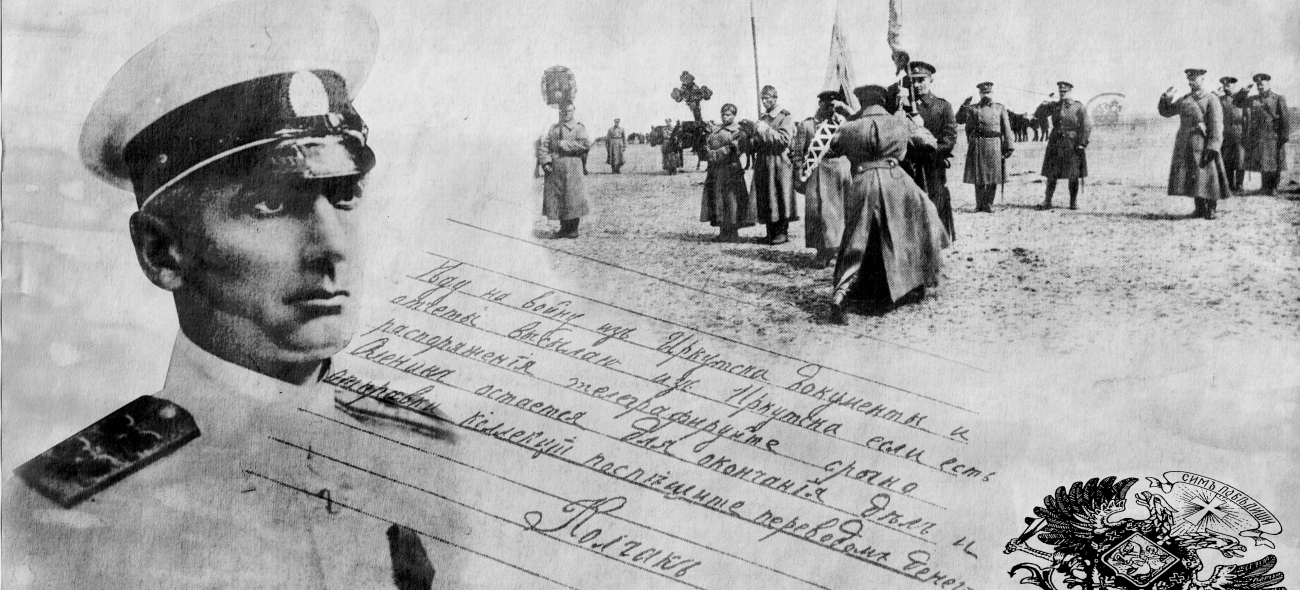 Ѣду на войну изъ Иркутска документы и
отчеты высылаю изъ Иркутска если есть
распоряженія телеграфируйте срочно
Оленинъ остается для окончанія дѣлъ и
отправки коллекцій поспѣшите переводомъ денег
Колчакъ
СИМЪ ПОБѢДИШИ